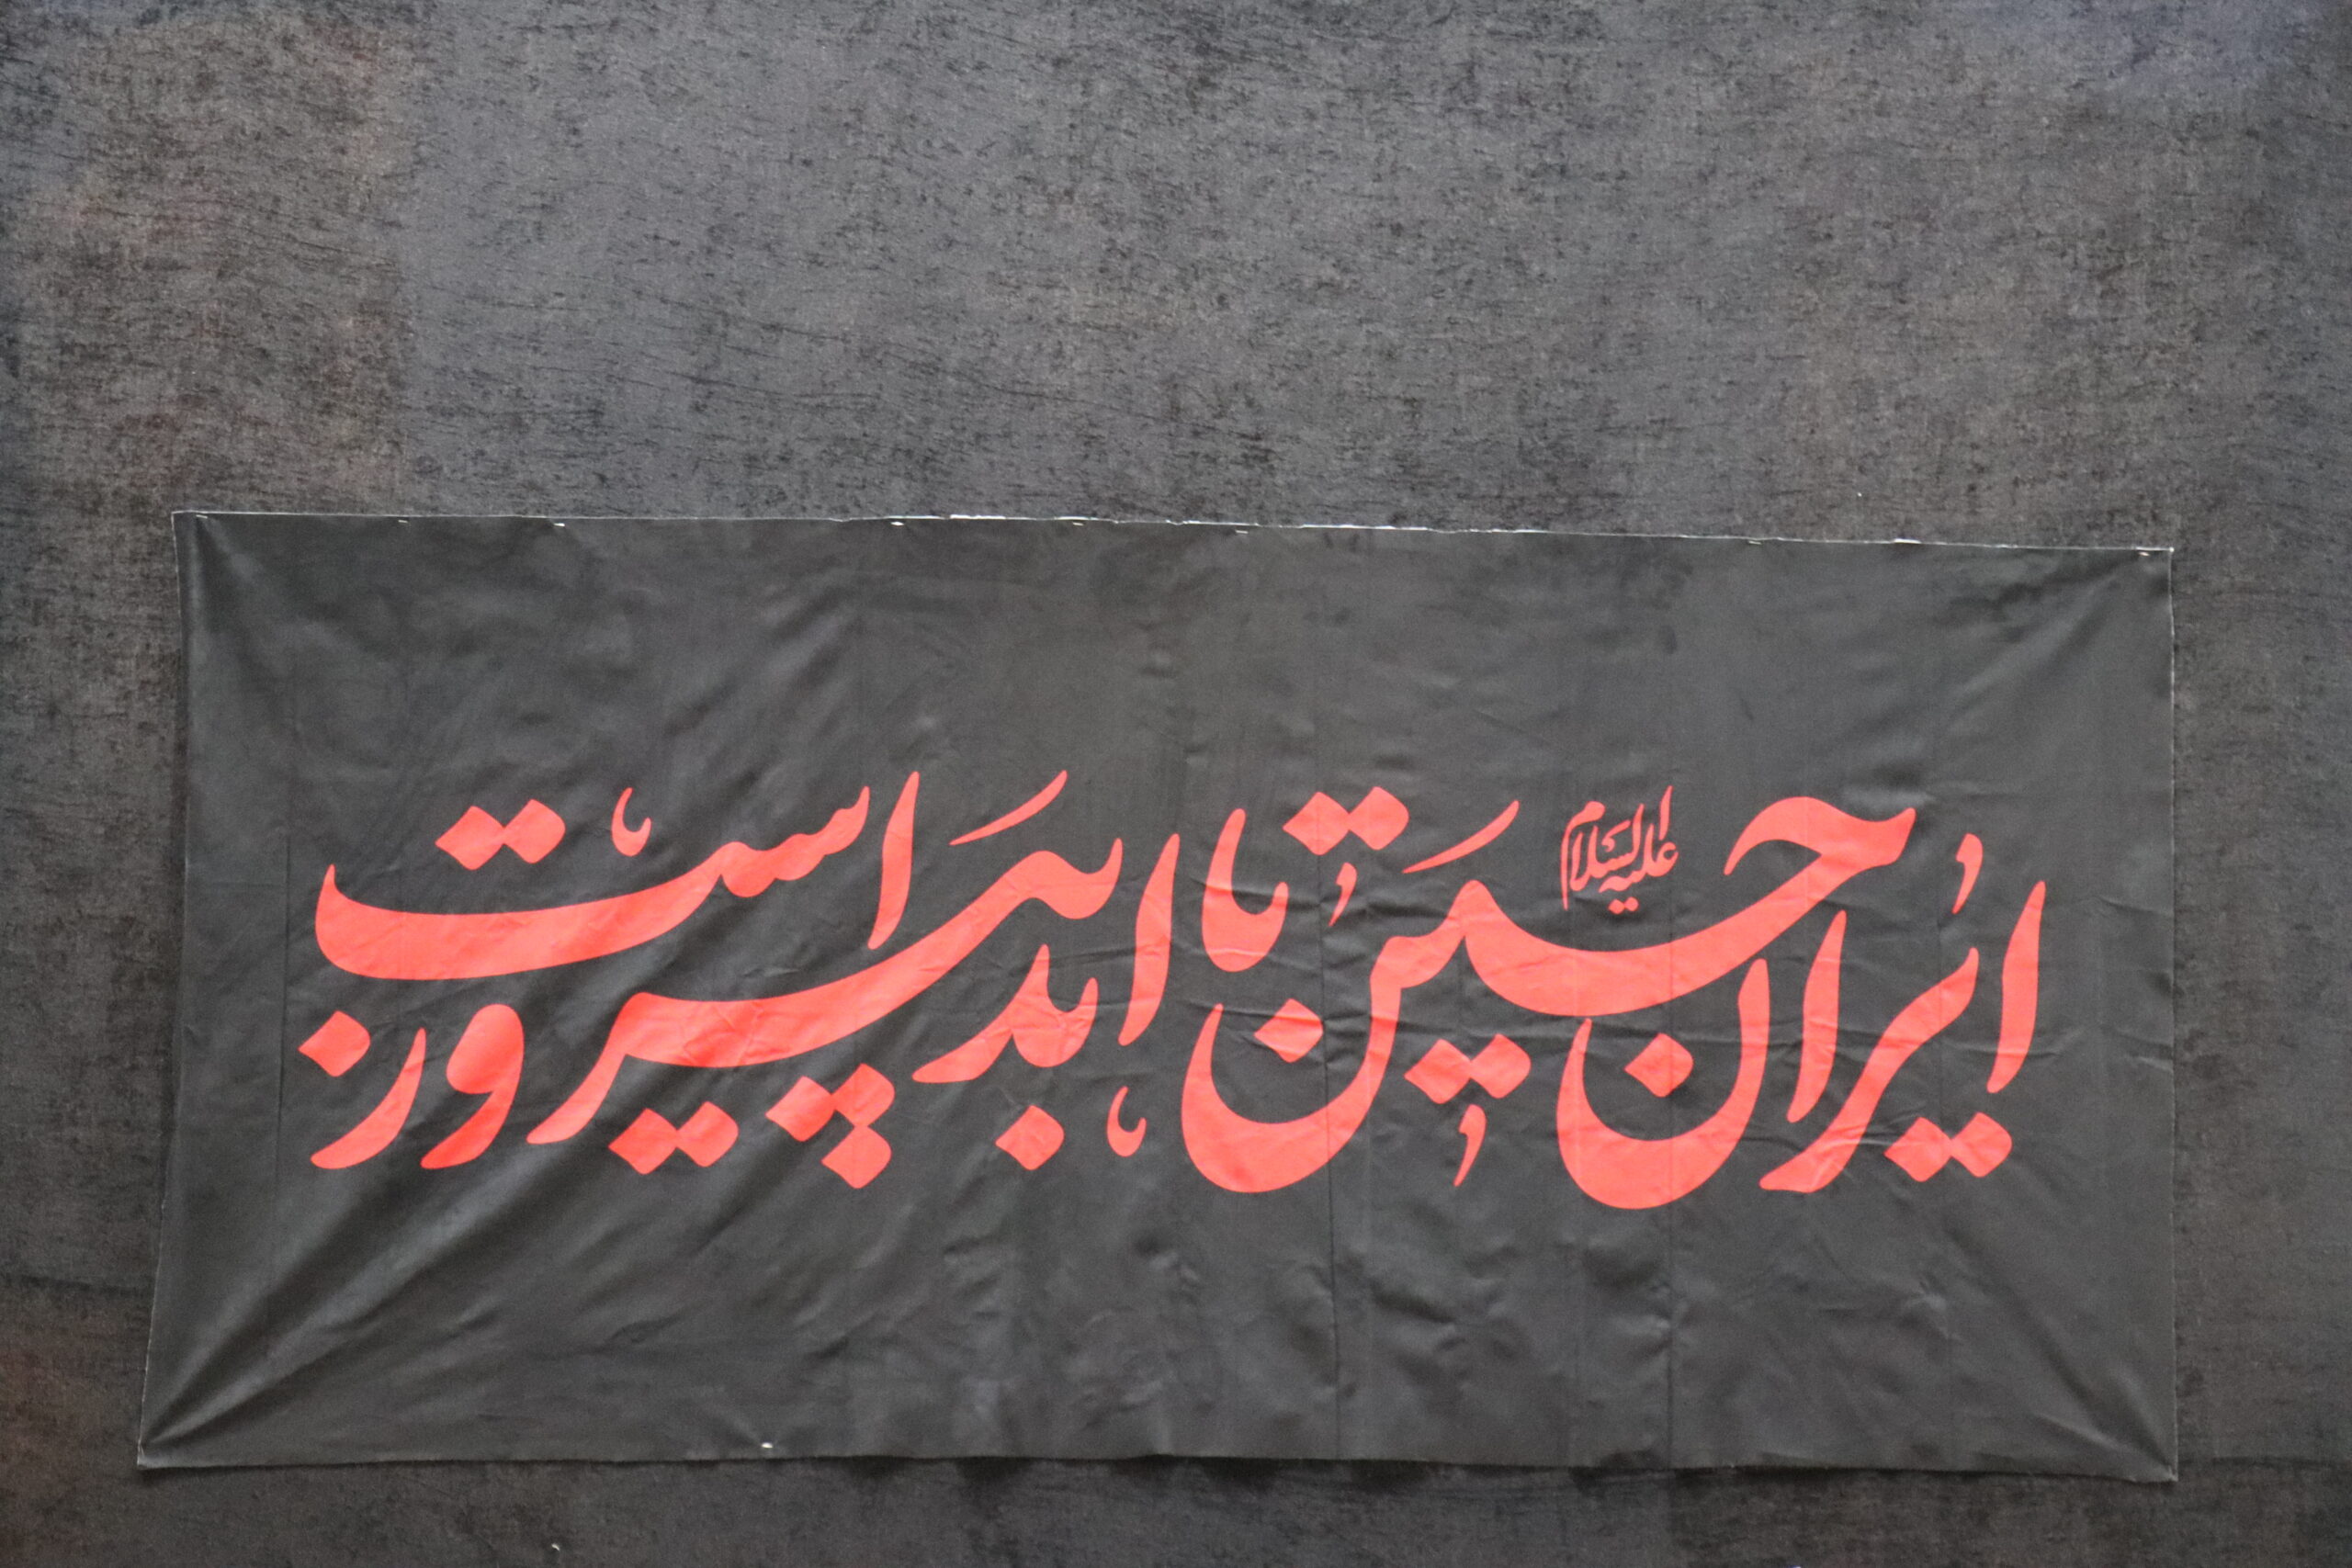 ایران حسین علیه السلام تا ابد پیروز است